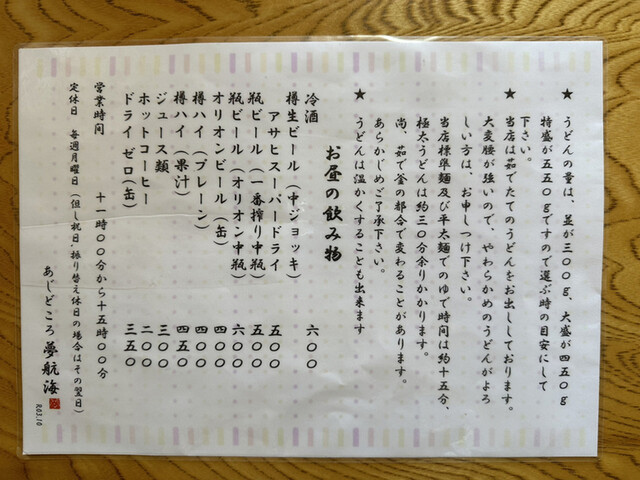 ★ うどんの量は、並が三〇〇g、大盛が四五〇g
特盛が五五〇gですので選ぶ時の目安にして
下さい。
★ 当店は茹でたてのうどんをお出ししております。
大変腰が強いので、やわらかめのうどんがよろ
しい方は、お申しつけ下さい。
当店標準麺及び平太麺でのゆで時間は約十五分、
極太うどんは約三〇分余りかかります。
尚、茹で釜の都合で変わることがあります。
あらかじめご了承下さい。
★ うどんは温かくすることも出来ます
お昼の飲み物
冷酒 六〇〇
樽生ビール(中ジョッキ)
アサヒスーパードライ 五〇〇
瓶ビール(一番搾り中瓶) 五〇〇
瓶ビール(オリオン中瓶) 六〇〇
オリオンビール(缶) 四〇〇
樽ハイ(プレーン) 四〇〇
樽ハイ(果汁) 四五〇
ジュース類 三〇〇
ホットコーヒー 二〇〇
ドライゼロ(缶) 三五〇
営業時間 十一時〇〇分から十五時〇〇分
定休日 毎週月曜日(但し祝日、振り替え休日の場合はその翌日)
あじどころ 夢航海
R03.10